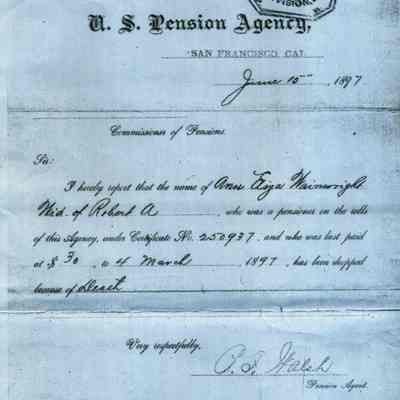 U. S. Pension Agency,
SAN FRANCISCO, CAL.
June 15th, 1897
Commissioner of Pensions.
Sir:
I hereby report that the name of Eliza Wainwright
Wid. of Robert A , who was a pensioner on the rolls
of this Agency, under Certificate No. 250937, and who was last paid
at $ 30, to 4 March, 1897, has been dropped
because of Death
Very respectfully,
Walsh
Pension Agent.